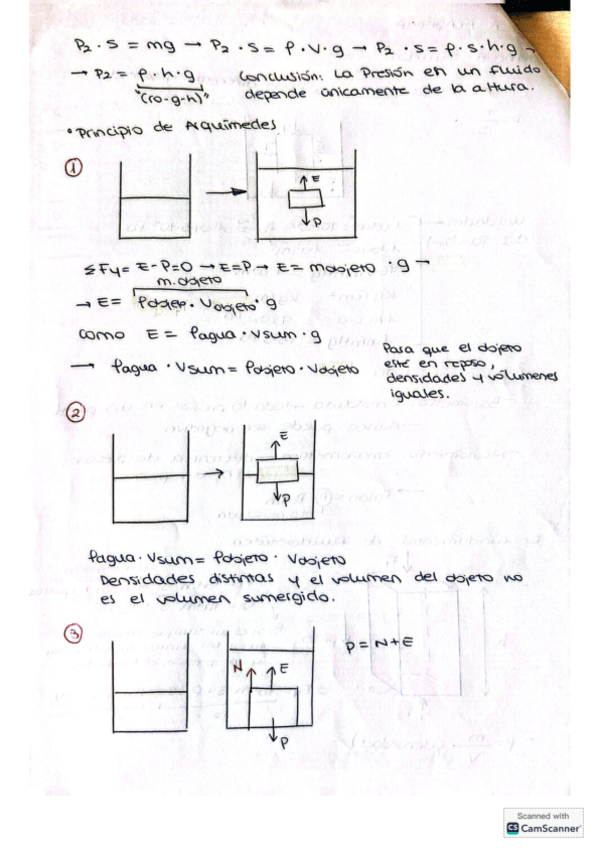 P2 · S = mg → P2 · S = ρ · V · g → P2 · S = ρ · S · h · g →
→ P2 = ρ · h · g
"(ro-g-h)"
Conclusión: La Presión en un fluido
depende únicamente de la altura.
• Principio de Arquímedes
①
E
P
ΣFy = E - P = 0 → E = P → E = mobjeto · g →
m. objeto
→ E = ρobjeto · Vobjeto · g
como E = ρagua · Vsum · g
→ ρagua · Vsum = ρobjeto · Vobjeto
Para que el objeto
esté en reposo,
densidades y volúmenes
iguales.
②
E
P
ρagua · Vsum = ρobjeto · Vobjeto
Densidades distintas y el volumen del objeto no
es el volumen sumergido.
③
N
E
P
P = N + E
Scanned with
CS CamScanner